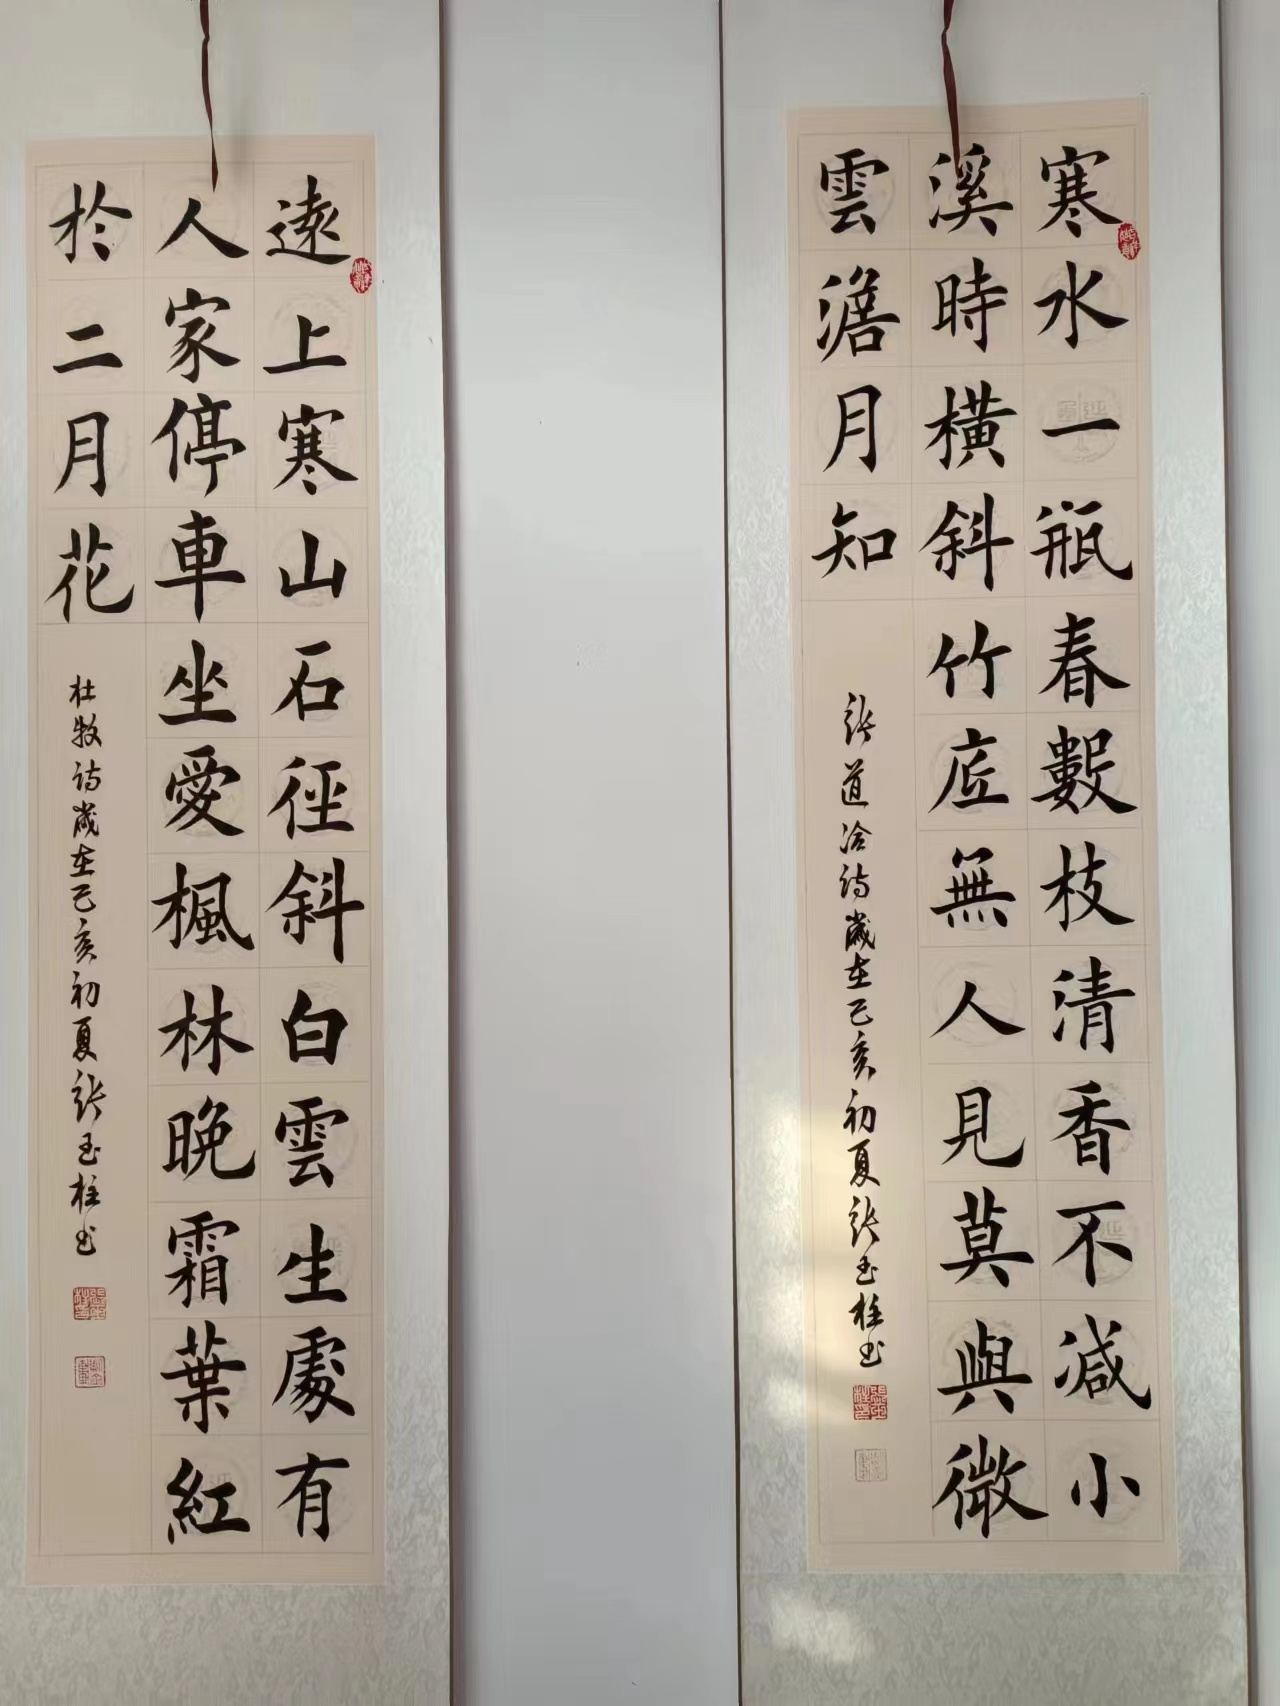 寒水一瓶春數枝清香不減小
溪時橫斜竹底無人見莫與微
雲澹月知
張道洽詩歲在己亥初夏張玉柱書
遠上寒山石徑斜白雲生處有
人家停車坐愛楓林晚霜葉紅
於二月花
杜牧詩歲在己亥初夏張玉柱書